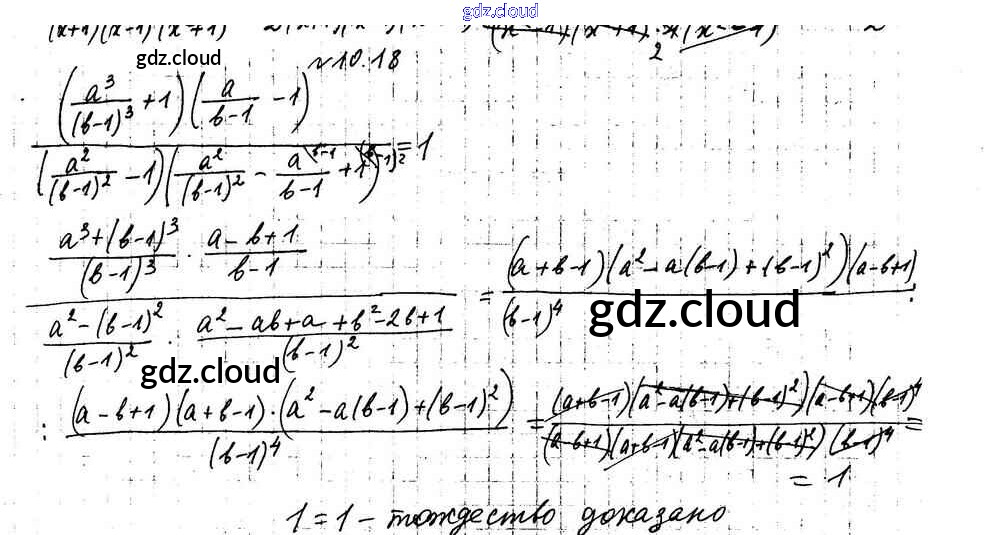 gdz.cloud
gdz.cloud
№10.18
((a³/(b-1)³ + 1)(a/(b-1) - 1)) / ((a²/(b-1)² - 1)(a²/(b-1)² - a\ᵇ⁻¹/(b-1) + 1\⁽ᵇ⁻¹⁾²)) = 1
((a³+(b-1)³)/(b-1)³ · (a-b+1)/(b-1)) / ((a²-(b-1)²)/(b-1)² · (a²-ab+a+b²-2b+1)/(b-1)²) = (a+b-1)(a²-a(b-1)+(b-1)²)(a-b+1)/(b-1)⁴ :
gdz.cloud
gdz.cloud
: (a-b+1)(a+b-1)·(a²-a(b-1)+(b-1)²)/(b-1)⁴ = (a+b-1)(a²-a(b-1)+(b-1)²)(a-b+1)(b-1)⁴/((a-b+1)(a+b-1)(a²-a(b-1)+(b-1)²)(b-1)⁴) =
= 1
1 = 1 - тождество доказано